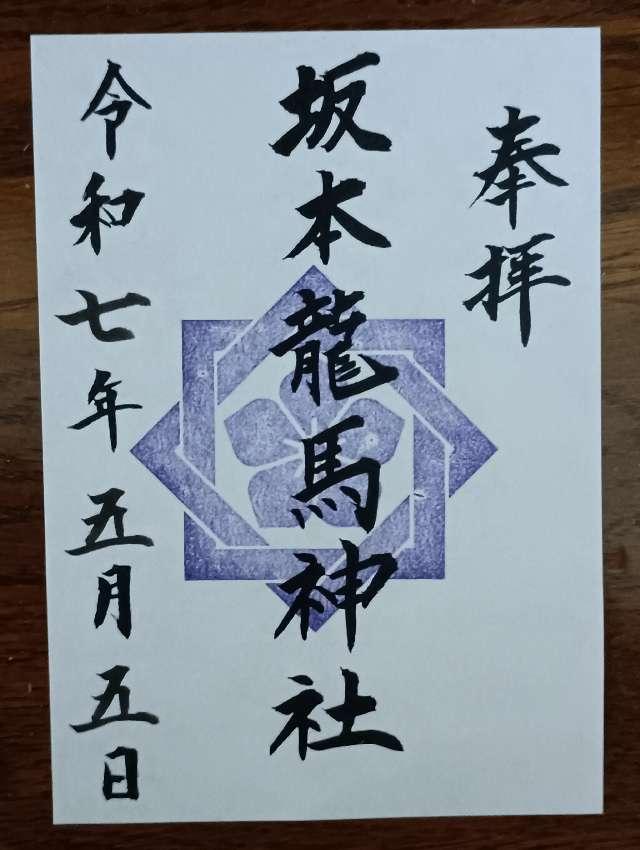 奉拝
坂本龍馬神社
令和七年五月五日